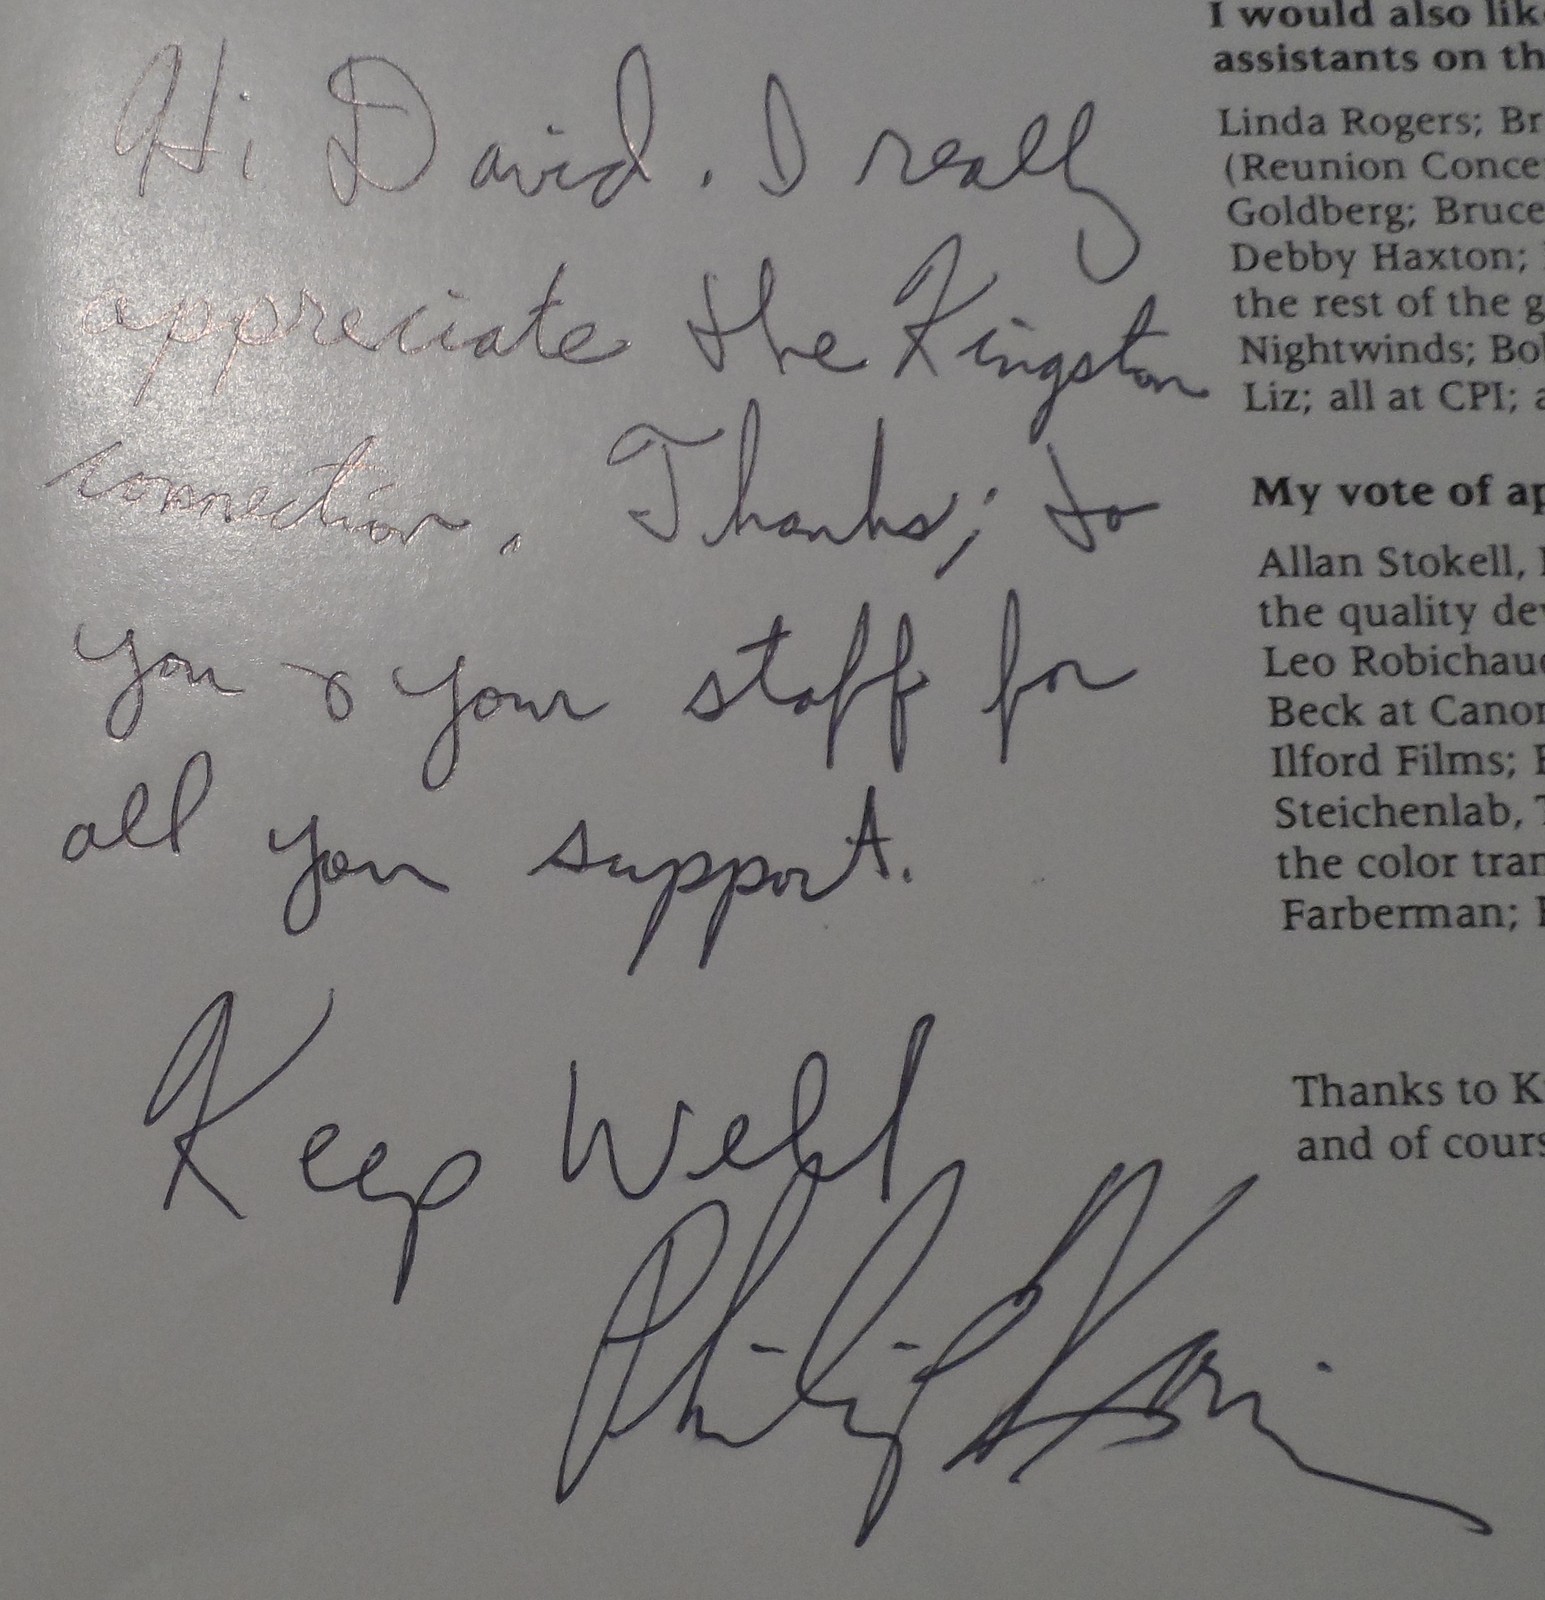 Hi David. I really
appreciate the Kingston
connection. Thanks; to
you & your staff for
all your support.
Keep Well
Philip
I would also lik
assistants on th
Linda Rogers; Br
(Reunion Conce
Goldberg; Bruce
Debby Haxton;
the rest of the g
Nightwinds; Bo
Liz; all at CPI; a
My vote of ap
Allan Stokell,
the quality de
Leo Robichau
Beck at Canon
Ilford Films;
Steichenlab,
the color tran
Farberman;
Thanks to K
and of cours